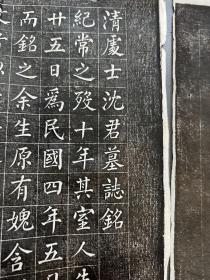 清處士沈君墓誌銘
紀常之歿十年其室人
廿五日為民國四年五
而銘之余生原有媿含